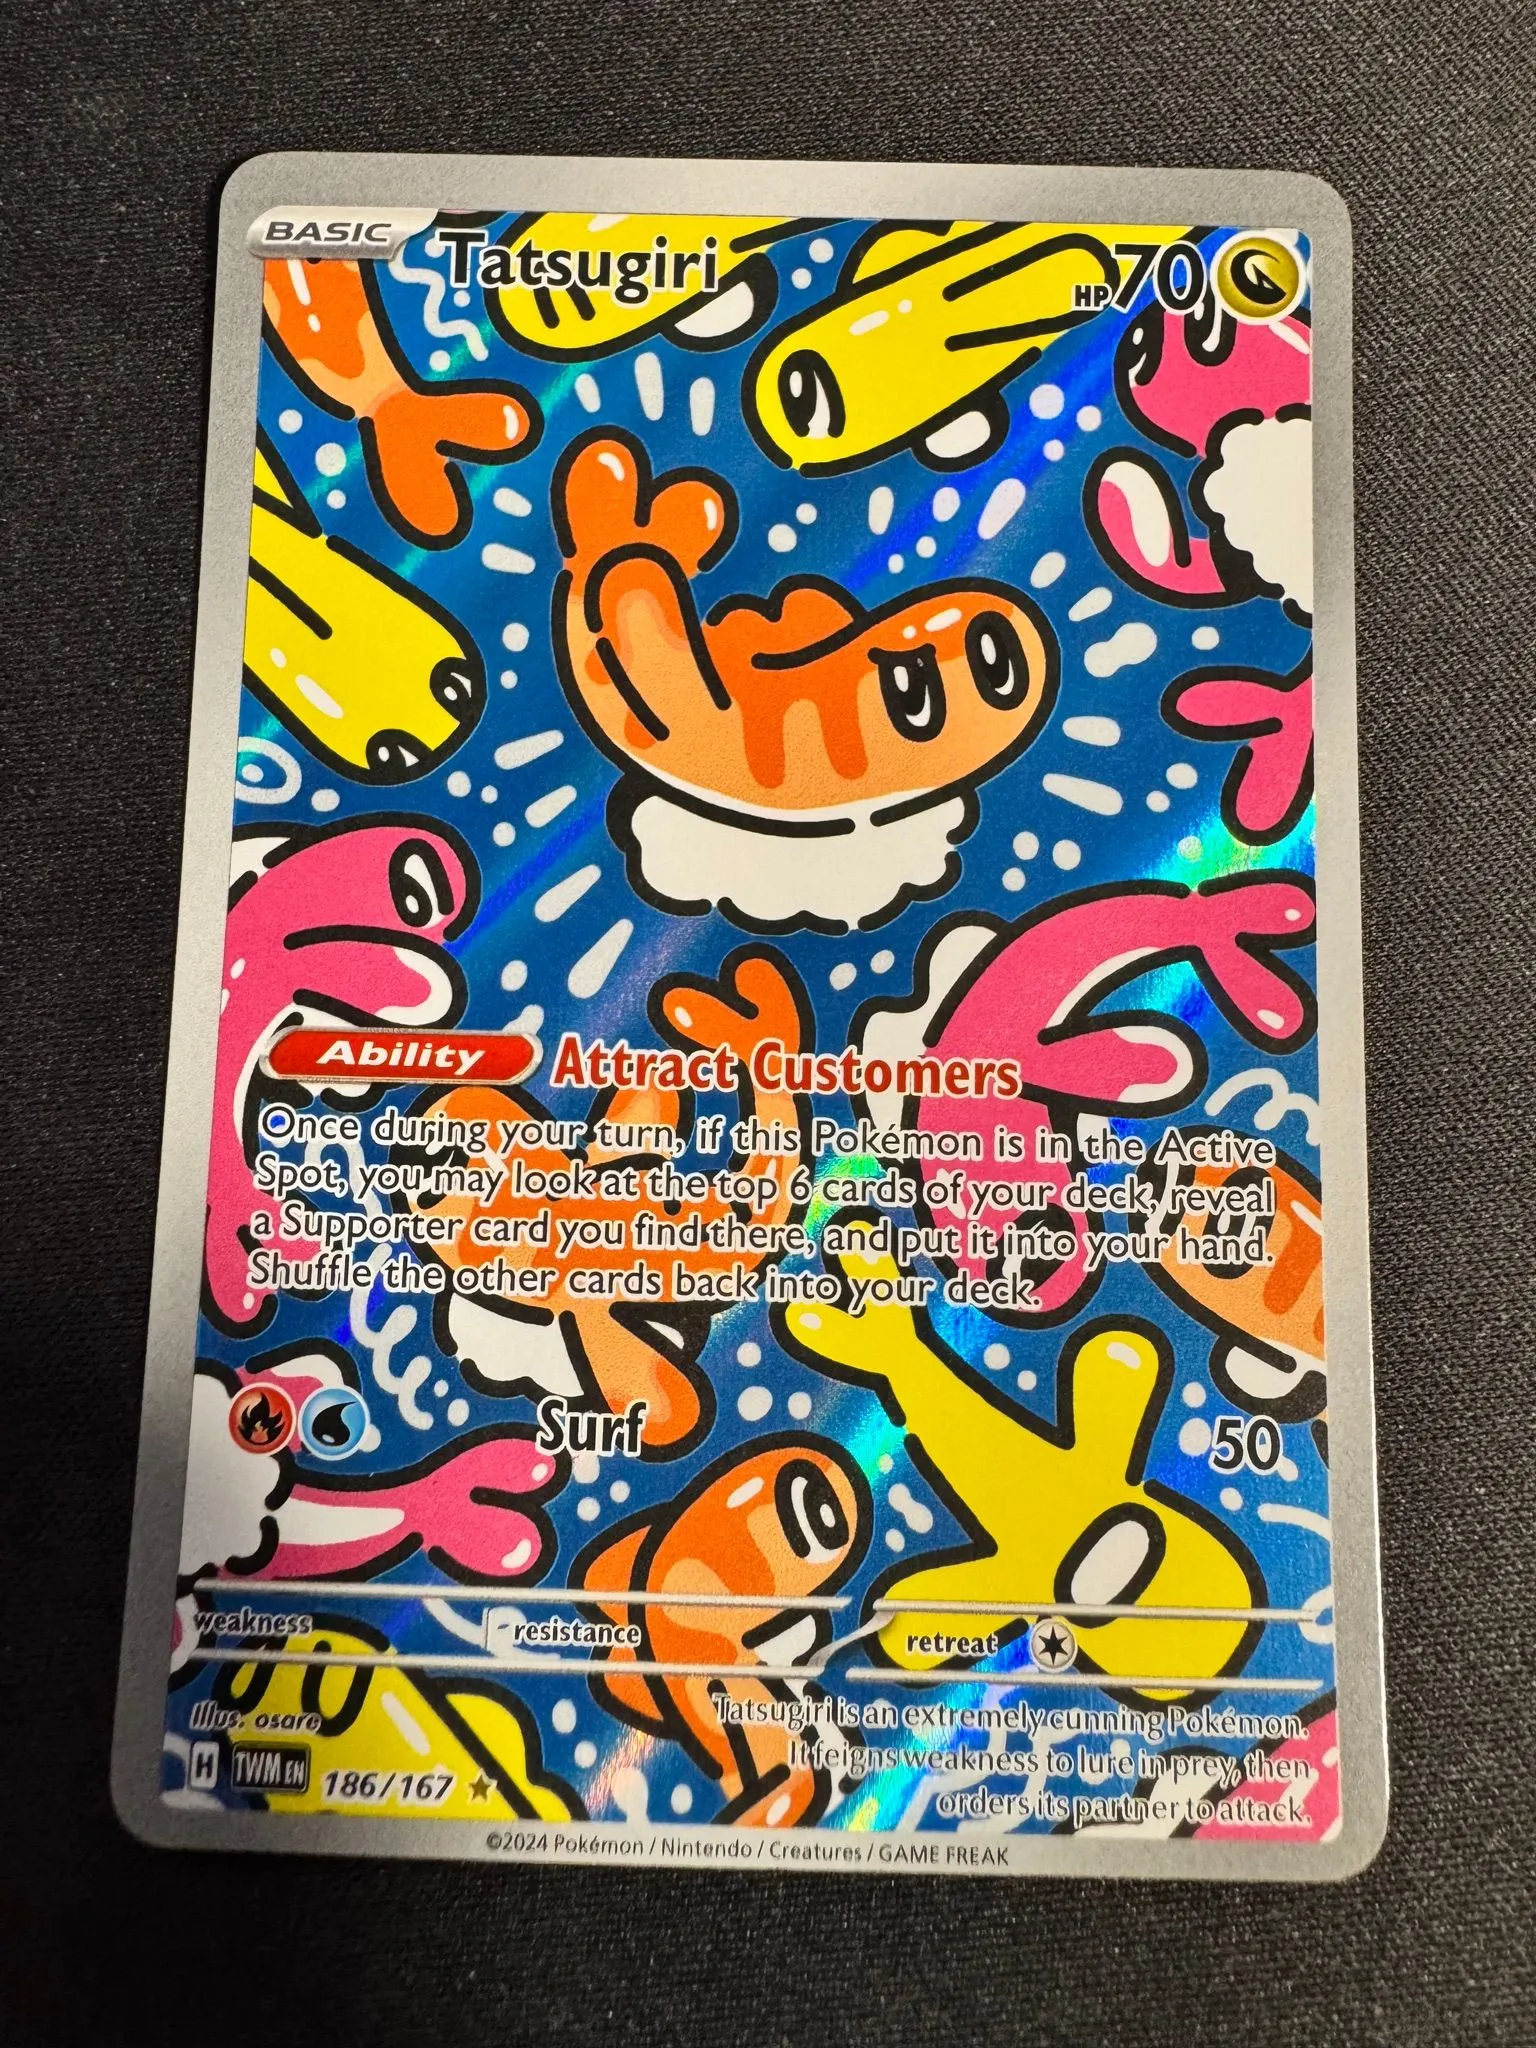 BASIC Tatsugiri HP 70
Ability Attract Customers
Once during your turn, if this Pokémon is in the Active
Spot, you may look at the top 6 cards of your deck, reveal
a Supporter card you find there, and put it into your hand.
Shuffle the other cards back into your deck.
Surf 50
weakness resistance retreat
Illus. osare
Tatsugiri is an extremely cunning Pokémon.
It feigns weakness to lure in prey, then
orders its partner to attack.
H TWM EN 186/167
©2024 Pokémon / Nintendo / Creatures / GAME FREAK